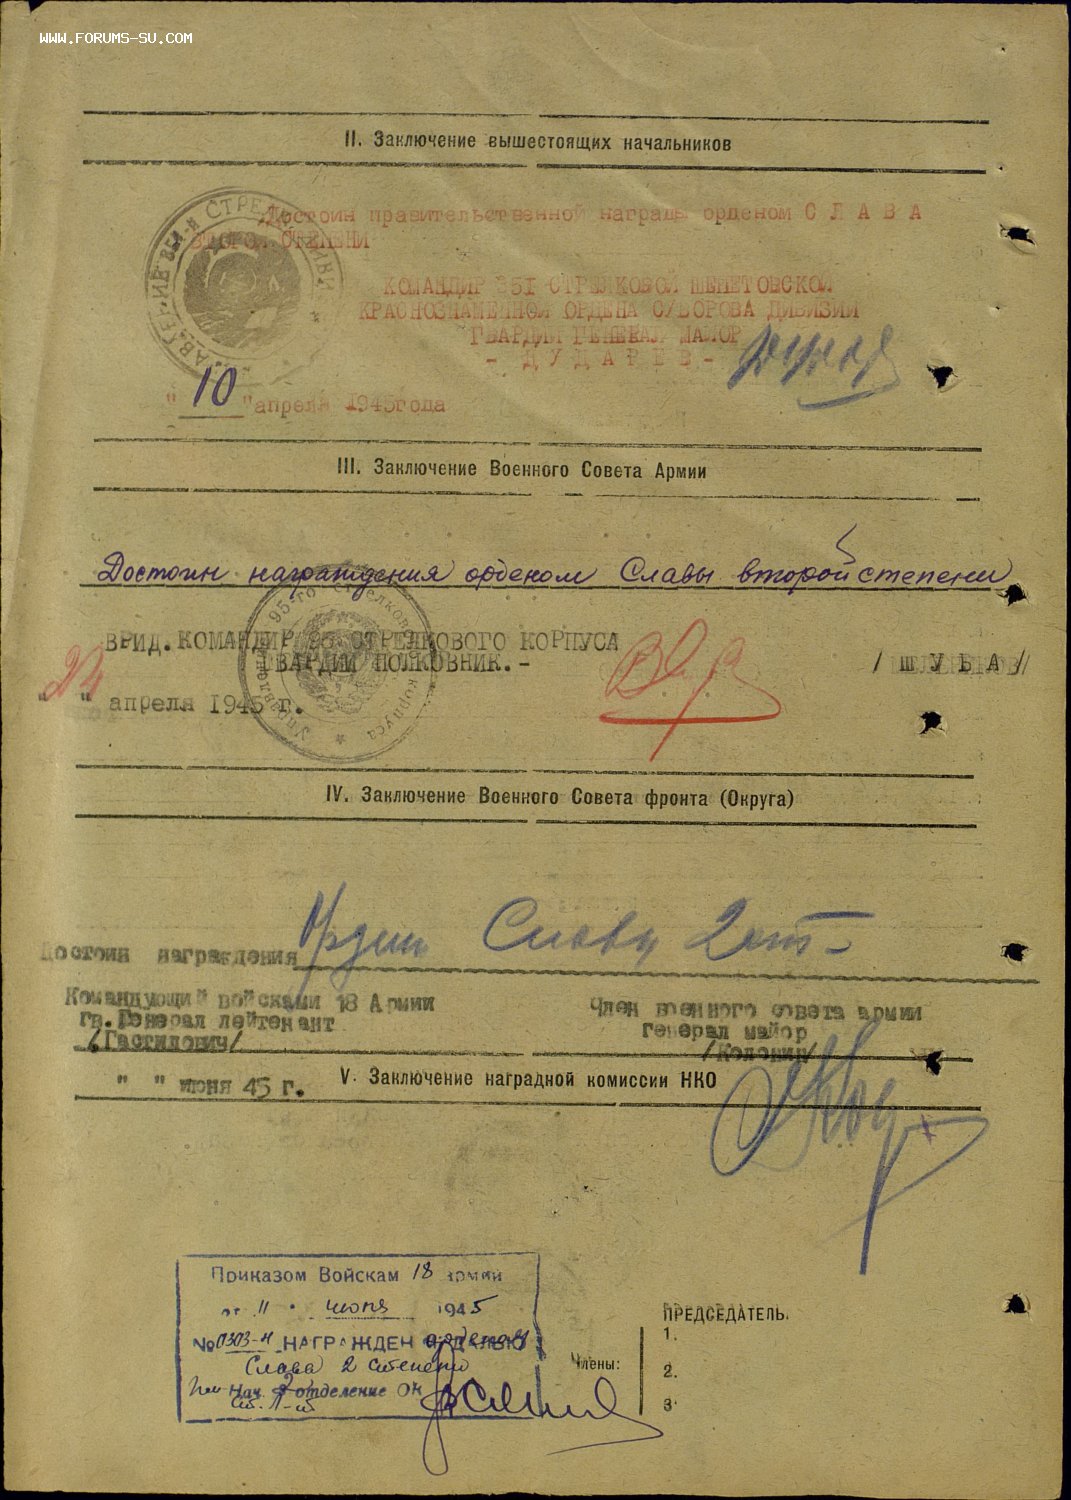 WWW.FORUMS-SU.COM
II. Заключение вышестоящих начальников
Достоин правительственной награды орденом С Л А В А
ВТОРОЙ СТЕПЕНИ
КОМАНДИР 351 СТРЕЛКОВОЙ ШЕПЕТОВСКОЙ
КРАСНОЗНАМЕННОЙ ОРДЕНА СУВОРОВА ДИВИЗИИ
ГВАРДИИ ГЕНЕРАЛ МАЙОР
- Д У Д А Р Е В -
" 10 " апреля 1945 года
III. Заключение Военного Совета Армии
Достоин награждения орденом Славы второй степени
ВРИД. КОМАНДИР 95 СТРЕЛКОВОГО КОРПУСА
ГВАРДИИ ПОЛКОВНИК.-
/ Ш У Б А /
" 24 " апреля 1945 г.
Управление 95-го стрелкового корпуса
IV. Заключение Военного Совета фронта (Округа)
Достоин награждения Орден Славы 2 ст
Командующий войсками 18 Армии
гв. Генерал лейтенант
/Гастилович/
Член военного совета армии
генерал майор
/Колонин/
" " июня 45 г.
V. Заключение наградной комиссии НКО
Приказом Войскам 18 армии
от 11 июня 1945
№ 0303-н НАГРАЖДЕН орденом
Слава 2 степени
Нач. 2 отделение ОК
ПРЕДСЕДАТЕЛЬ:
Члены:
1.
2.
3